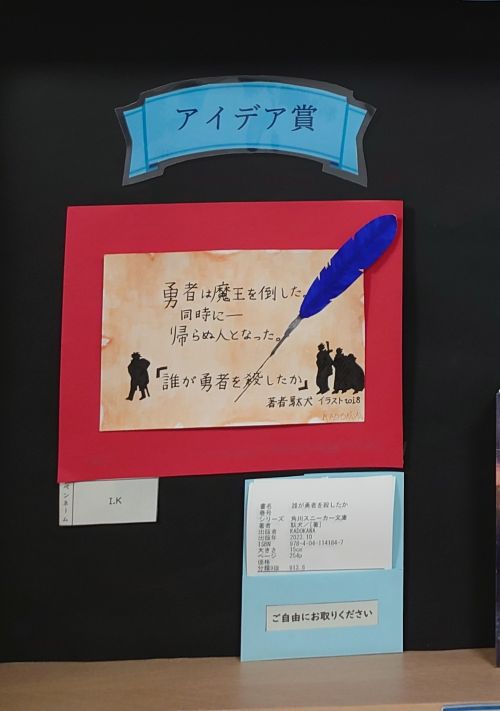 アイデア賞
勇者は魔王を倒した。
同時に―
帰らぬ人となった。
『誰が勇者を殺したか』
著者 駄犬 イラスト toi8
KADOKAWA
ペンネーム
I.K
書名 誰が勇者を殺したか
巻号
シリーズ 角川スニーカー文庫
著者 駄犬/[著]
出版者 KADOKAWA
出版年 2023.10
ISBN 978-4-04-114184-7
大きさ 15cm
ページ 254p
価格
分類9版 913.6
ご自由にお取りください